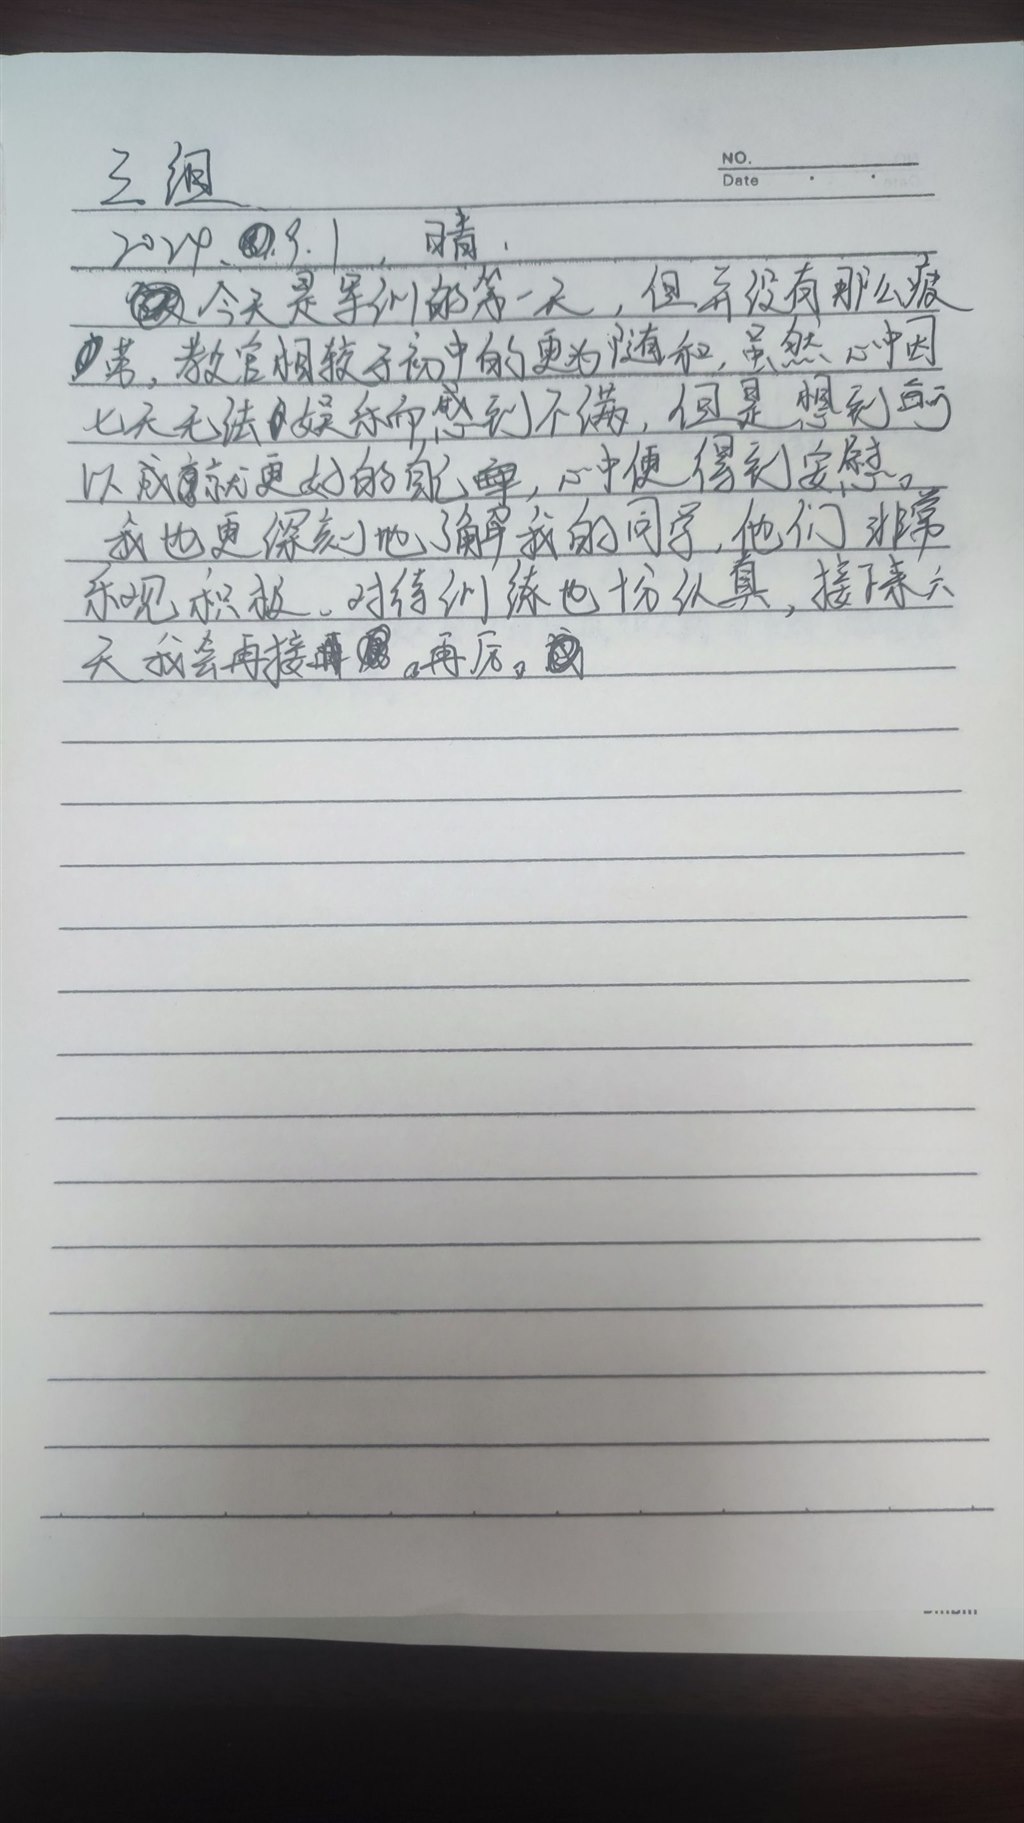 三组
NO.
Date
2024. 9.1, 晴.
今天是军训的第一天，但并没有那么疲
劳，教官相较于初中的更为随和，虽然心中因
七天无法娱乐而感到不满，但是想到可
以成就更好的自己，心中便得到安慰。
我也更深刻地了解我的同学，他们非常
乐观积极、对待训练也十分认真，接下来六
天我会再接 。再历。